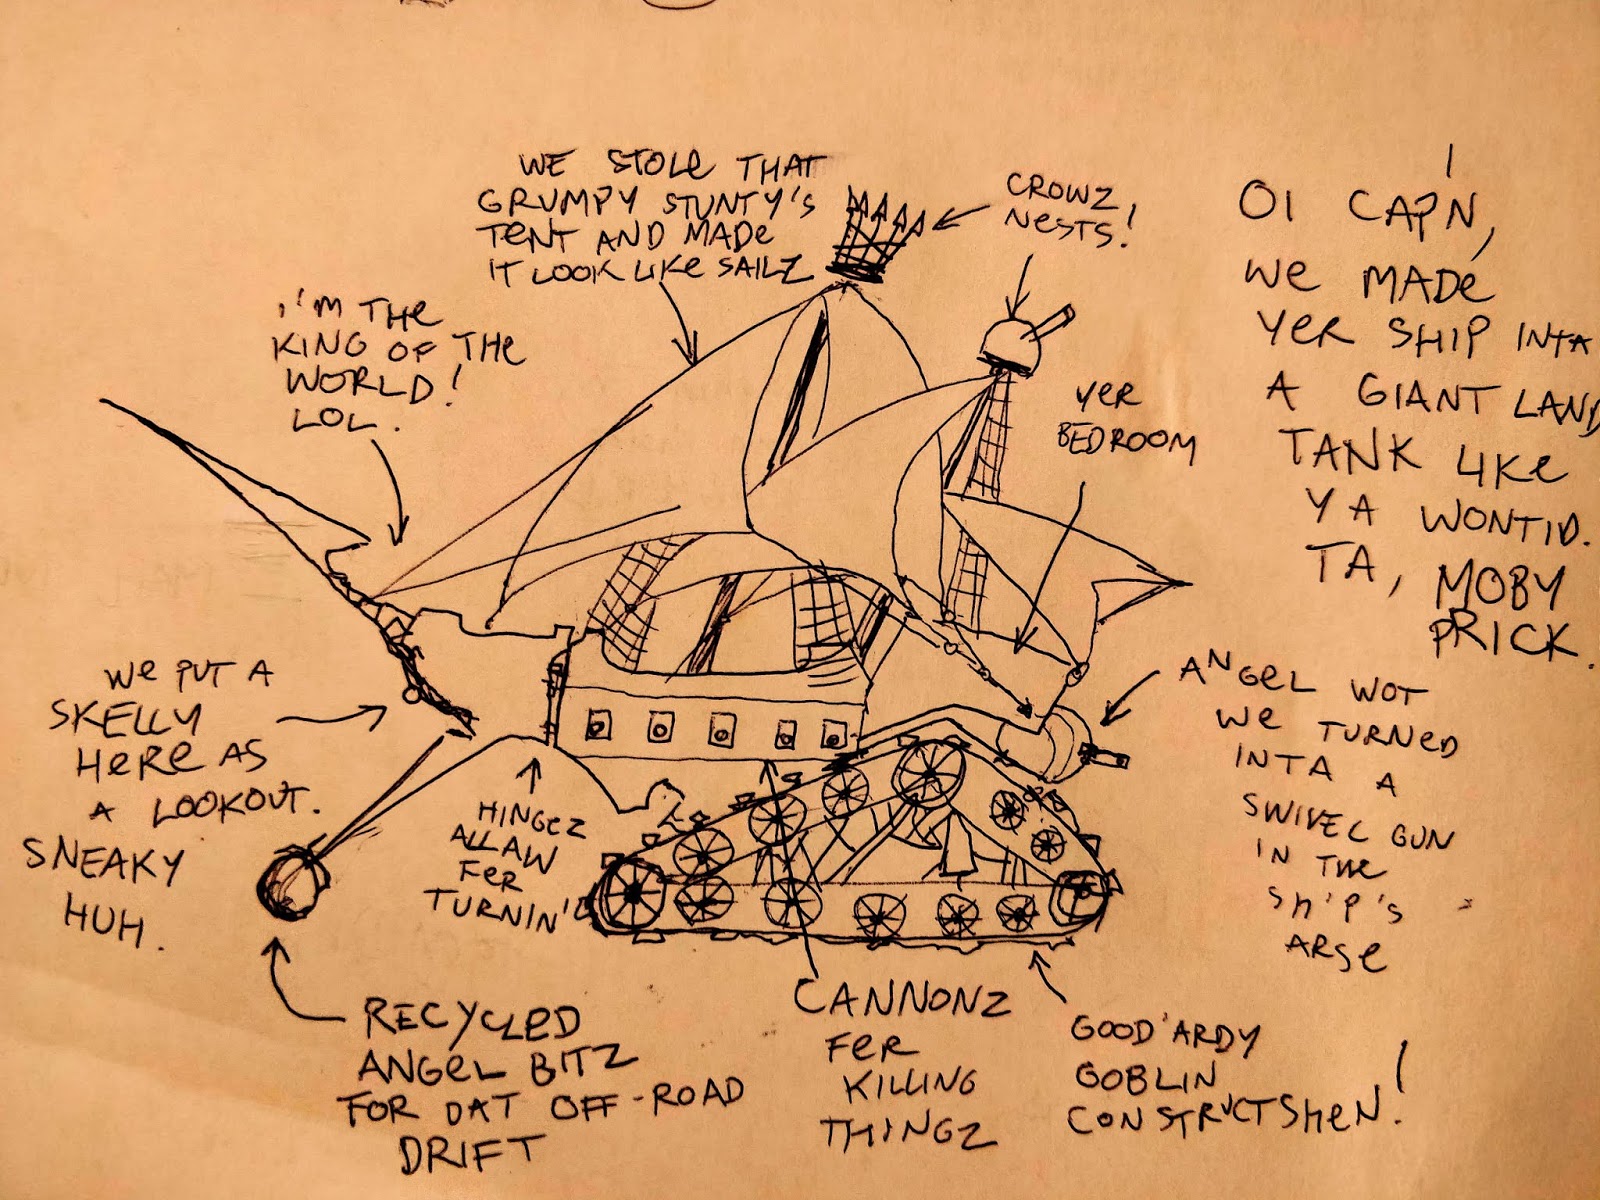 WE STOLE THAT
GRUMPY STUNTY'S
TENT AND MADE
IT LOOK LIKE SAILZ
CROWZ
NESTS!
OI CAP'N,
WE MADE
YER SHIP INTA
A GIANT LAND
TANK LIKE
YA WONTID.
TA, MOBY
PRICK.
I'M THE
KING OF THE
WORLD!
LOL.
YER
BEDROOM
WE PUT A
SKELLY
HERE AS
A LOOKOUT.
SNEAKY
HUH.
HINGEZ
ALLAW
FER
TURNIN'
ANGEL WOT
WE TURNED
INTA A
SWIVEL GUN
IN THE
SHIP'S
ARSE
RECYCLED
ANGEL BITZ
FOR DAT OFF-ROAD
DRIFT
CANNONZ
FER
KILLING
THINGZ
GOOD 'ARDY
GOBLIN
CONSTRUCTSHEN!